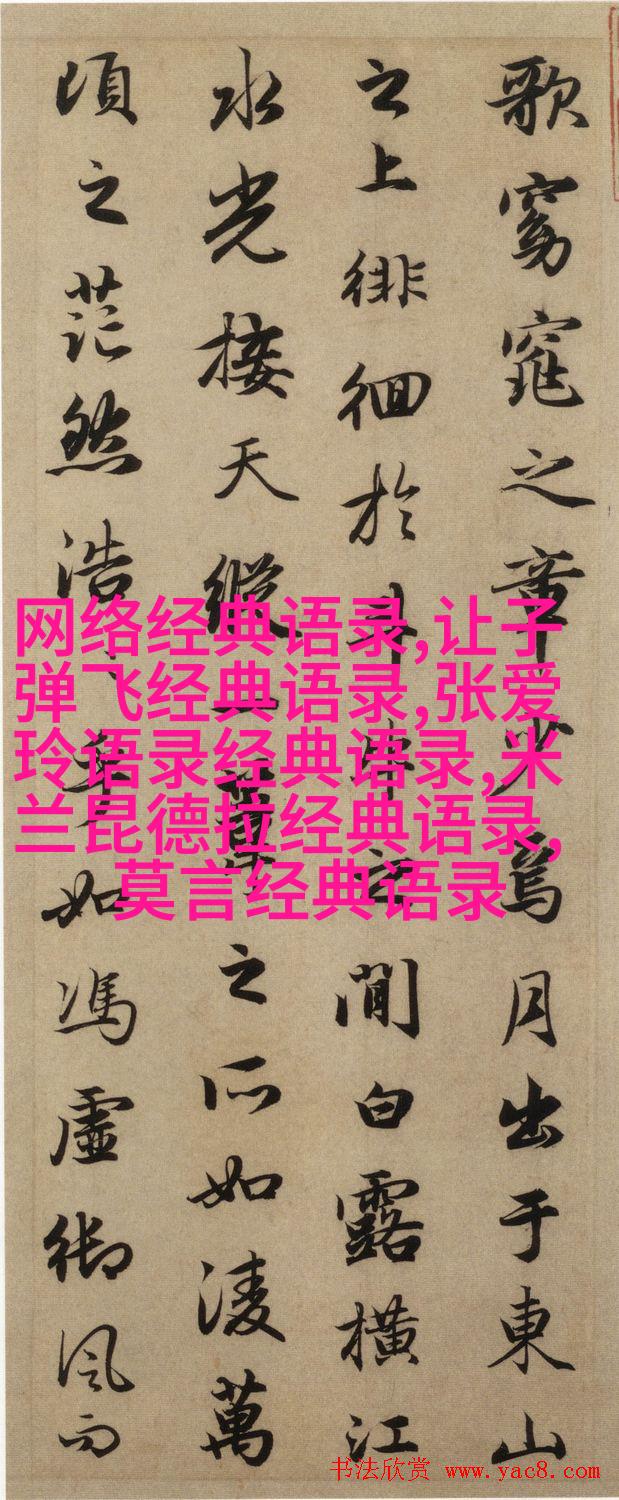 歌窈窕之章少焉月出于東山
之上徘徊於斗牛之間白露橫江
水光接天縱一葦之所如淩萬
頃之茫然浩々乎如馮虛御風而
网络经典语录,让子
弹飞经典语录,张爱
玲语录经典语录,米
兰昆德拉经典语录,
莫言经典语录
书法欣赏 www.yac8.com